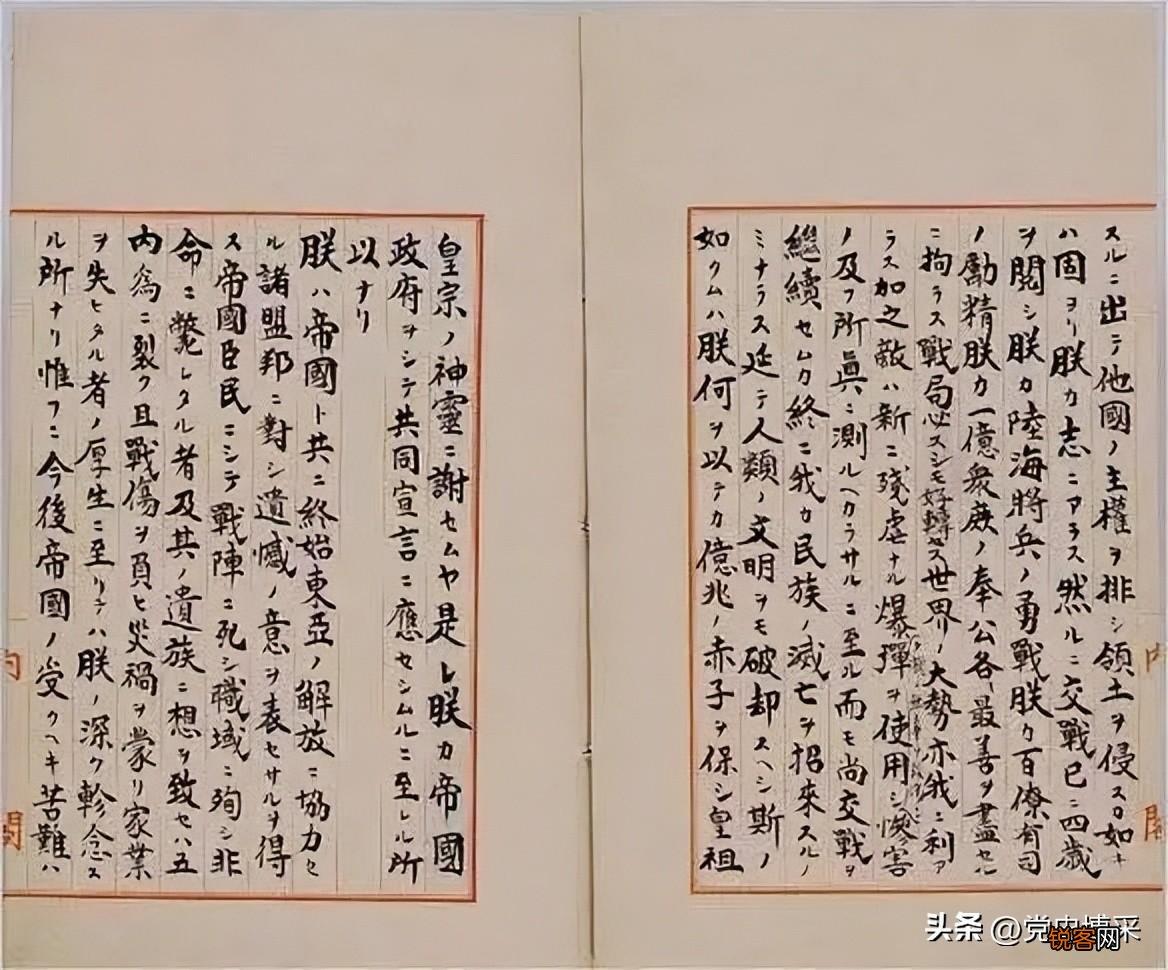 スルニ出テ他國ノ主權ヲ排シ領土ヲ侵スカ如キ
ハ固ヨリ朕カ志ニアラス然ルニ交戰已ニ四歳
ヲ閲シ朕カ陸海將兵ノ勇戰朕カ百僚有司
ノ勵精朕カ一億衆庶ノ奉公各〻最善ヲ盡セル
ニ拘ラス戰局必スシモ好轉セス世界ノ大勢亦我ニ利ア
ラス加之敵ハ新ニ殘虐ナル爆彈ヲ使用シ慘害
ノ及フ所眞ニ測ルヘカラサルニ至ル而モ尚交戰ヲ
繼續セムカ終ニ我カ民族ノ滅亡ヲ招來スルノ
ミナラス延テ人類ノ文明ヲモ破却スヘシ斯ノ
如クムハ朕何ヲ以テカ億兆ノ赤子ヲ保シ皇祖
内閣
皇宗ノ神靈ニ謝セムヤ是レ朕カ帝國
政府ヲシテ共同宣言ニ應セシムルニ至レル所
以ナリ
朕ハ帝國ト共ニ終始東亞ノ解放ニ協力セ
ル諸盟邦ニ對シ遺憾ノ意ヲ表セサルヲ得
ス帝國臣民ニシテ戰陣ニ死シ職域ニ殉シ非
命ニ斃レタル者及其ノ遺族ニ想ヲ致セハ五
内爲ニ裂ク且戰傷ヲ負ヒ災禍ヲ蒙リ家業
ヲ失ヒタル者ノ厚生ニ至リテハ朕ノ深ク軫念ス
ル所ナリ惟フニ今後帝國ノ受クヘキ苦難ハ
内閣
头条 @党史博采
锐客网